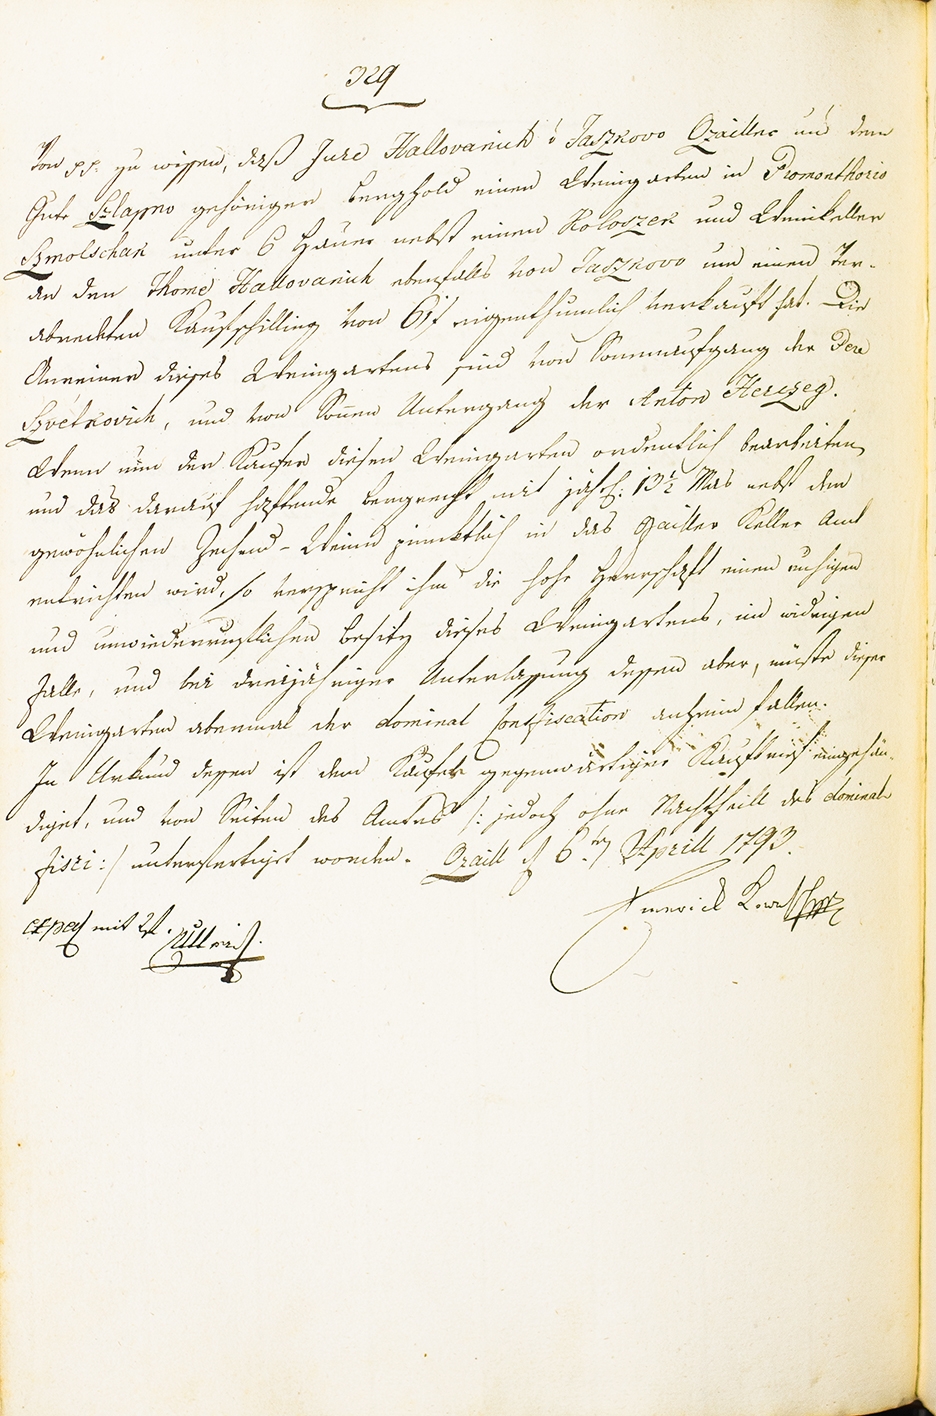 329
Von pp. zu wissen, daß Jure Hallovanich ó Jaszkovo Ozailler und dem
Gute Szlapno gehöriger berghold einen Weingarten in Promonthorio
Szmolschak unter 6 Hauer nebst einem Koloszek und Weinkeller
an den Thome Hallovanich ebenfalls von Jaszkovo um einen Ver-
abredten Kaufschilling von 61 f eigenthumlich verkauft hat. Die
Anreiner dieses Weingartens sind von Sonnaufgang der Pere
Szvetkovich, und von Sonnen Untergang der Anton Herczeg.
Wenn nun der Kaufer diesen Weingarten ordentlich bearbeiten,
und das darauf haftende bergrecht mit jährl: 13½ Mas nebst dem
gewöhnlichen Zehend-Weine pünktlich in das Ozailler Keller Amt
entrichten wird, so verspricht ihm die hohe Herrschaft einen ruhigen
und unwiederruflichen besitz dieses Weingartens, im widrigen
Falle, und bei dreijähriger Unterlassung dessen aber, müste dieser
Weingarten abermal der dominal Confiscation anheim fallen.
In Urkund dessen ist dem Kaufer gegenwärtiger Kaufbrief eingehän-
diget, und von Seiten des Amtes /: jedoch ohne Nachtheill des dominal
fisci :/ unterfertiget worden. Ozaill d 6ten Aprill 1793.
Emerich
exped mit 2 f.